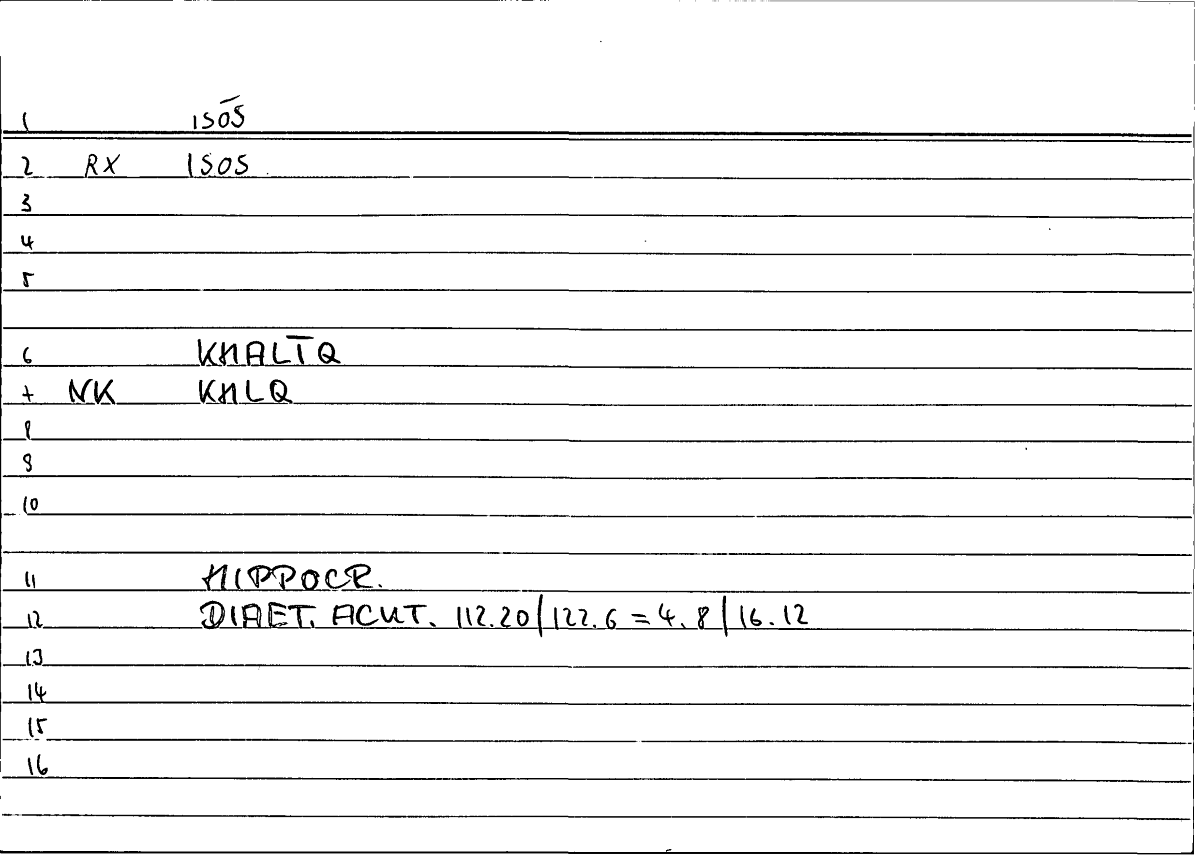 1 ISŌS
2 RX ISOS
3
4
5
6 KHALĪQ
7 NK KHLQ
8
9
10
11 HIPPOCR.
12 DIAET. ACUT. 112.20/122.6 = 4.8/16.12
13
14
15
16